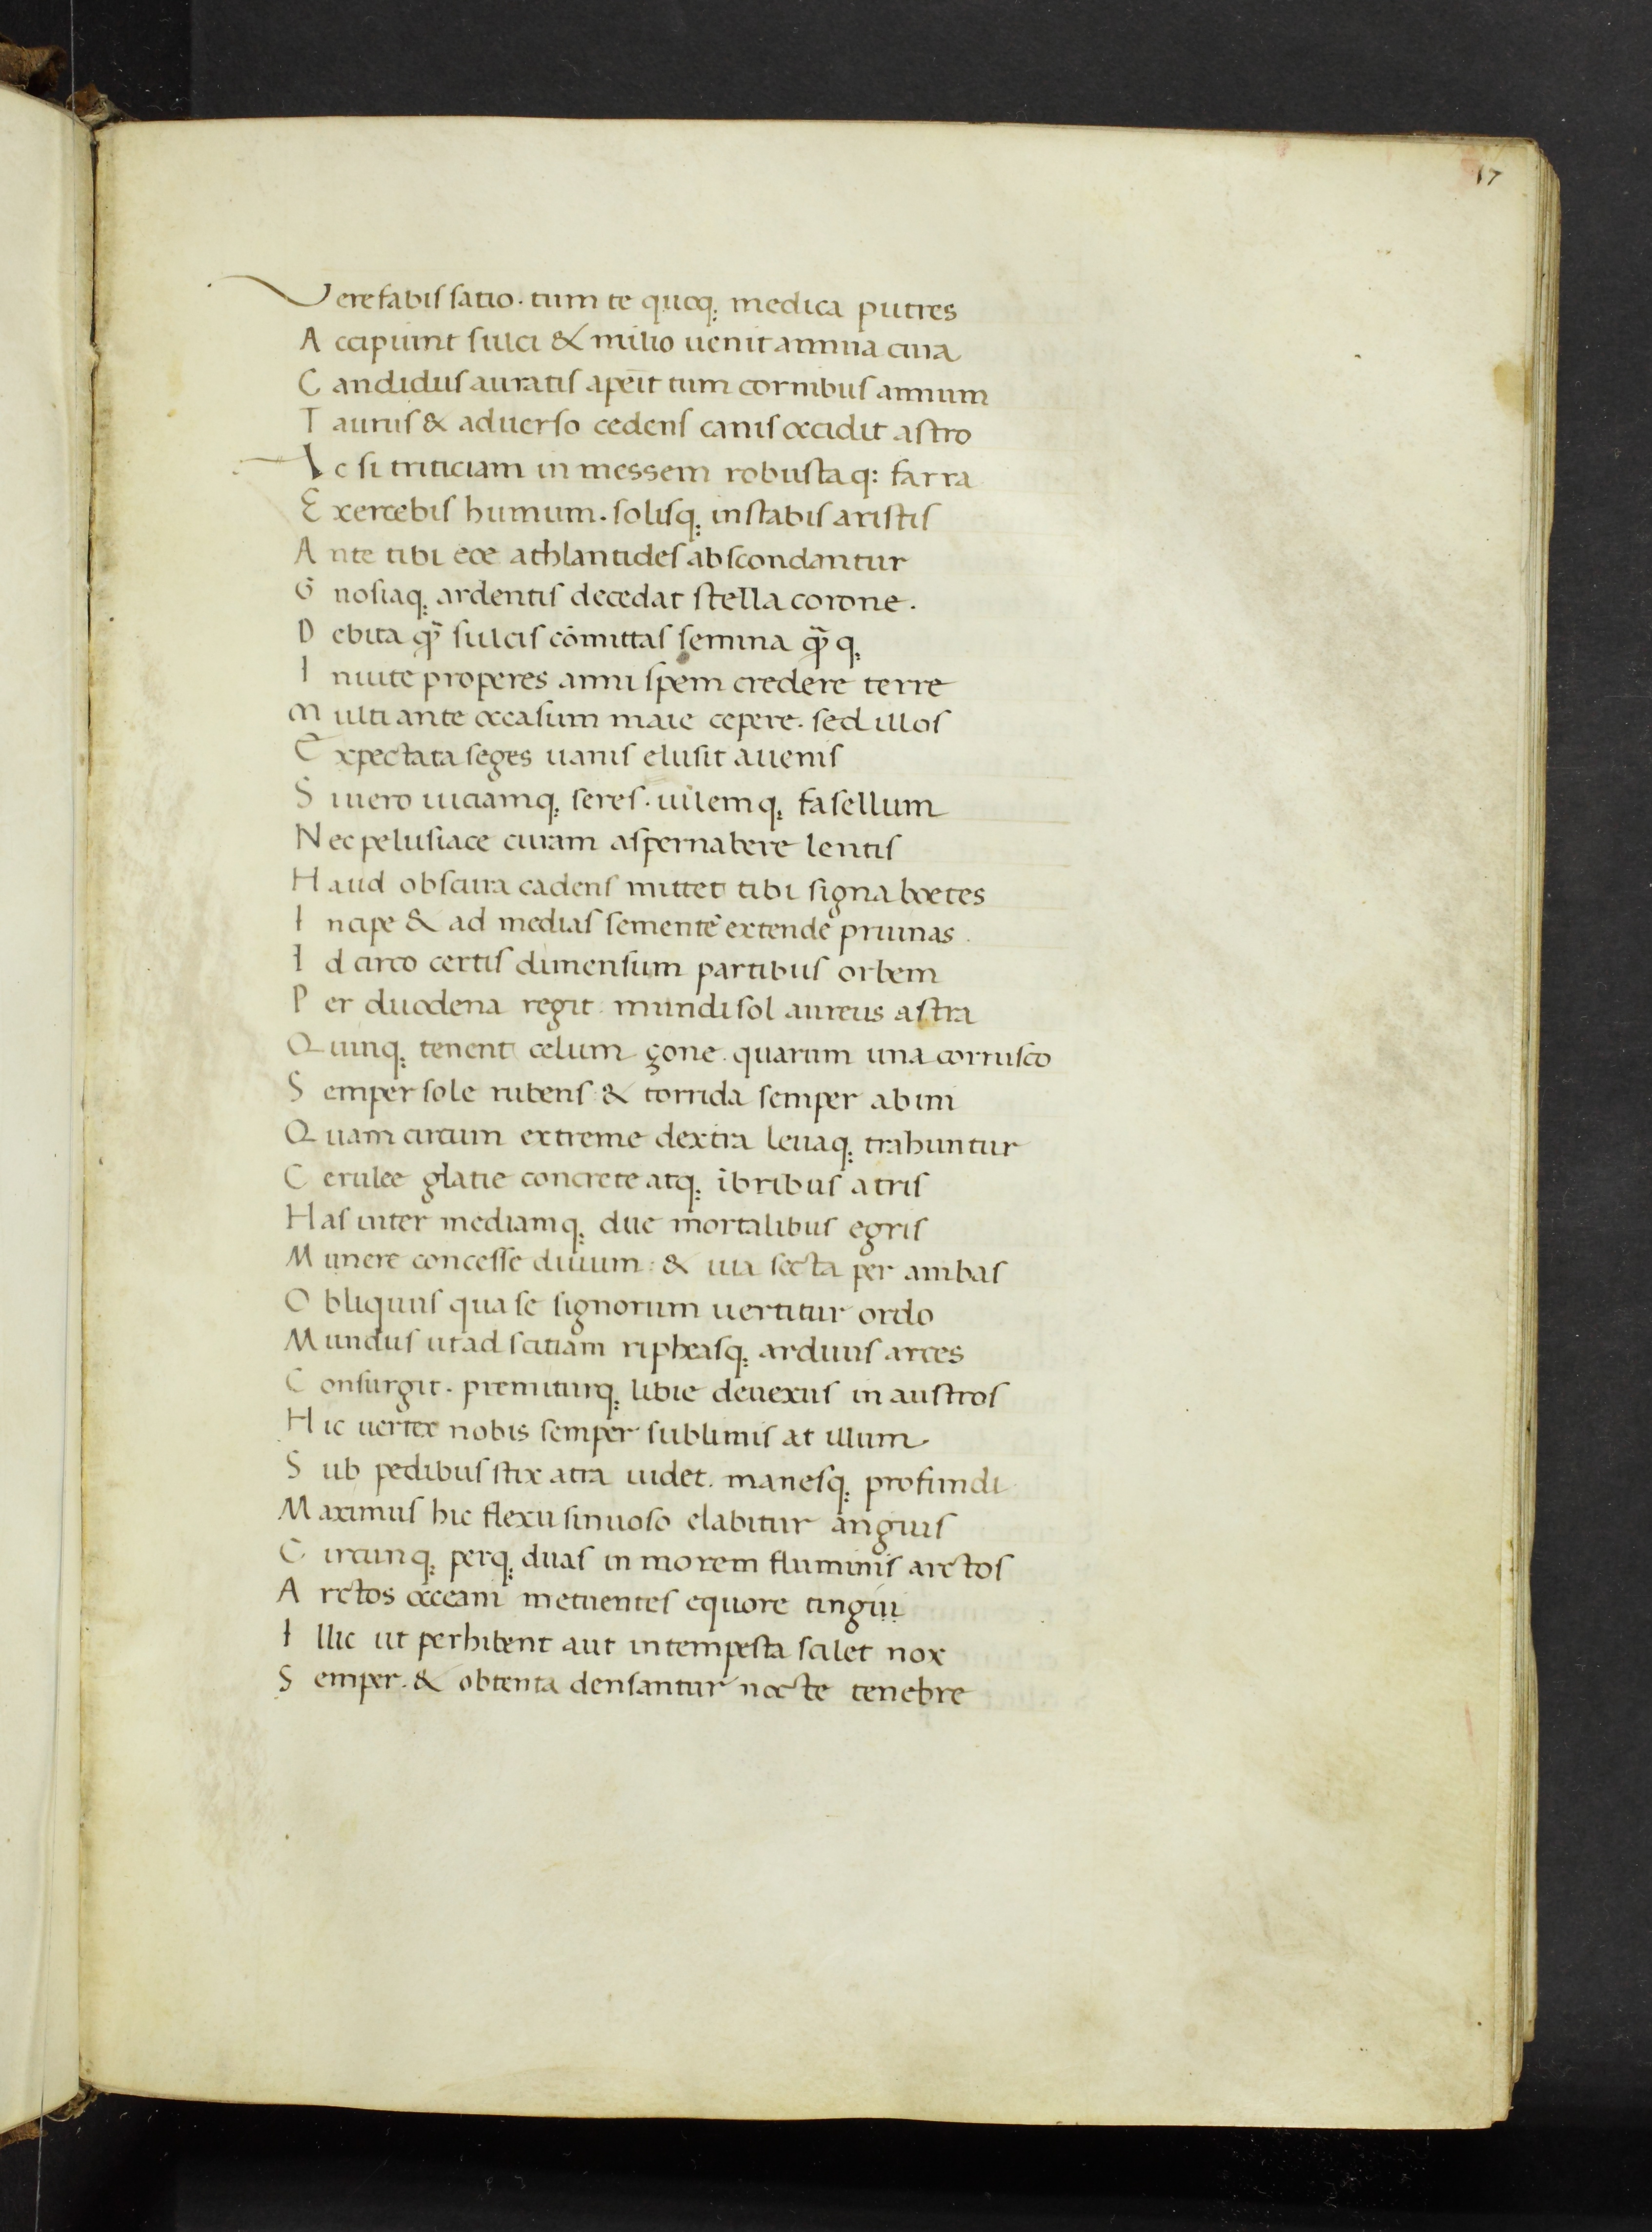 17
Vere fabis satio. tum te quoq; medica putres
Accipiunt sulci & milio uenit annua cura
Candidus auratis apeīt tum cornibus annum
Taurus & aduerso cedens canis occidit astro
Ac si triticiam in messem robustaq: farra
Exercebis humum. solisq; instabis aristis
Ante tibi eoe athlantides abscondantur
Gnosiaq; ardentis decedat stella corone.
Debita q̃ sulcis cōmittas semina q̃q;
Inuite properes anni spem credere terre
Multi ante occasum maie cepere. sed illos
Expectata seges uanis elusit auenis
Si uero uiciamq; seres. uilemq; fasellum
Nec pelusiace curam aspernabere lentis
Haud obscura cadens mittet tibi signa boetes
Incipe & ad medias sementē extende pruinas.
Idcirco certis dimensum partibus orbem
Per duodena regit mundi sol aureus astra
Quinq; tenent celum çone. quarum una corrusco
Semper sole rubens & torrida semper ab ini
Quam circum extreme dextra leuaq; trahuntur
Cerulee glatie concrete atq; ībribus atris
Has inter mediamq; due mortalibus egris
Munere concesse diuum: & uia secta per ambas
Obliquus qua se signorum uertitur ordo
Mundus ut ad scitiam ripheasq; arduus arces
Consurgit. premiturq; libie deuexus in austros
Hic uertex nobis semper sublimis at illum
Sub pedibus stix atra uidet. manesq; profundi
Maximus hic flexu sinuoso elabitur anguis
Circunq; perq; duas in morem fluminis arctos
Arctos occeani metuentes equore tingui
Illic ut perhibent aut intempesta scilet nox
Semper. & obtenta densantur nocte tenebre